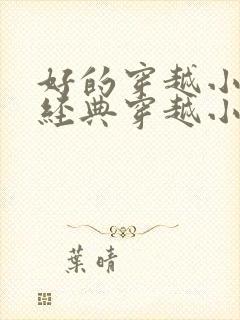 好的穿越小
經典穿越小
葉晴